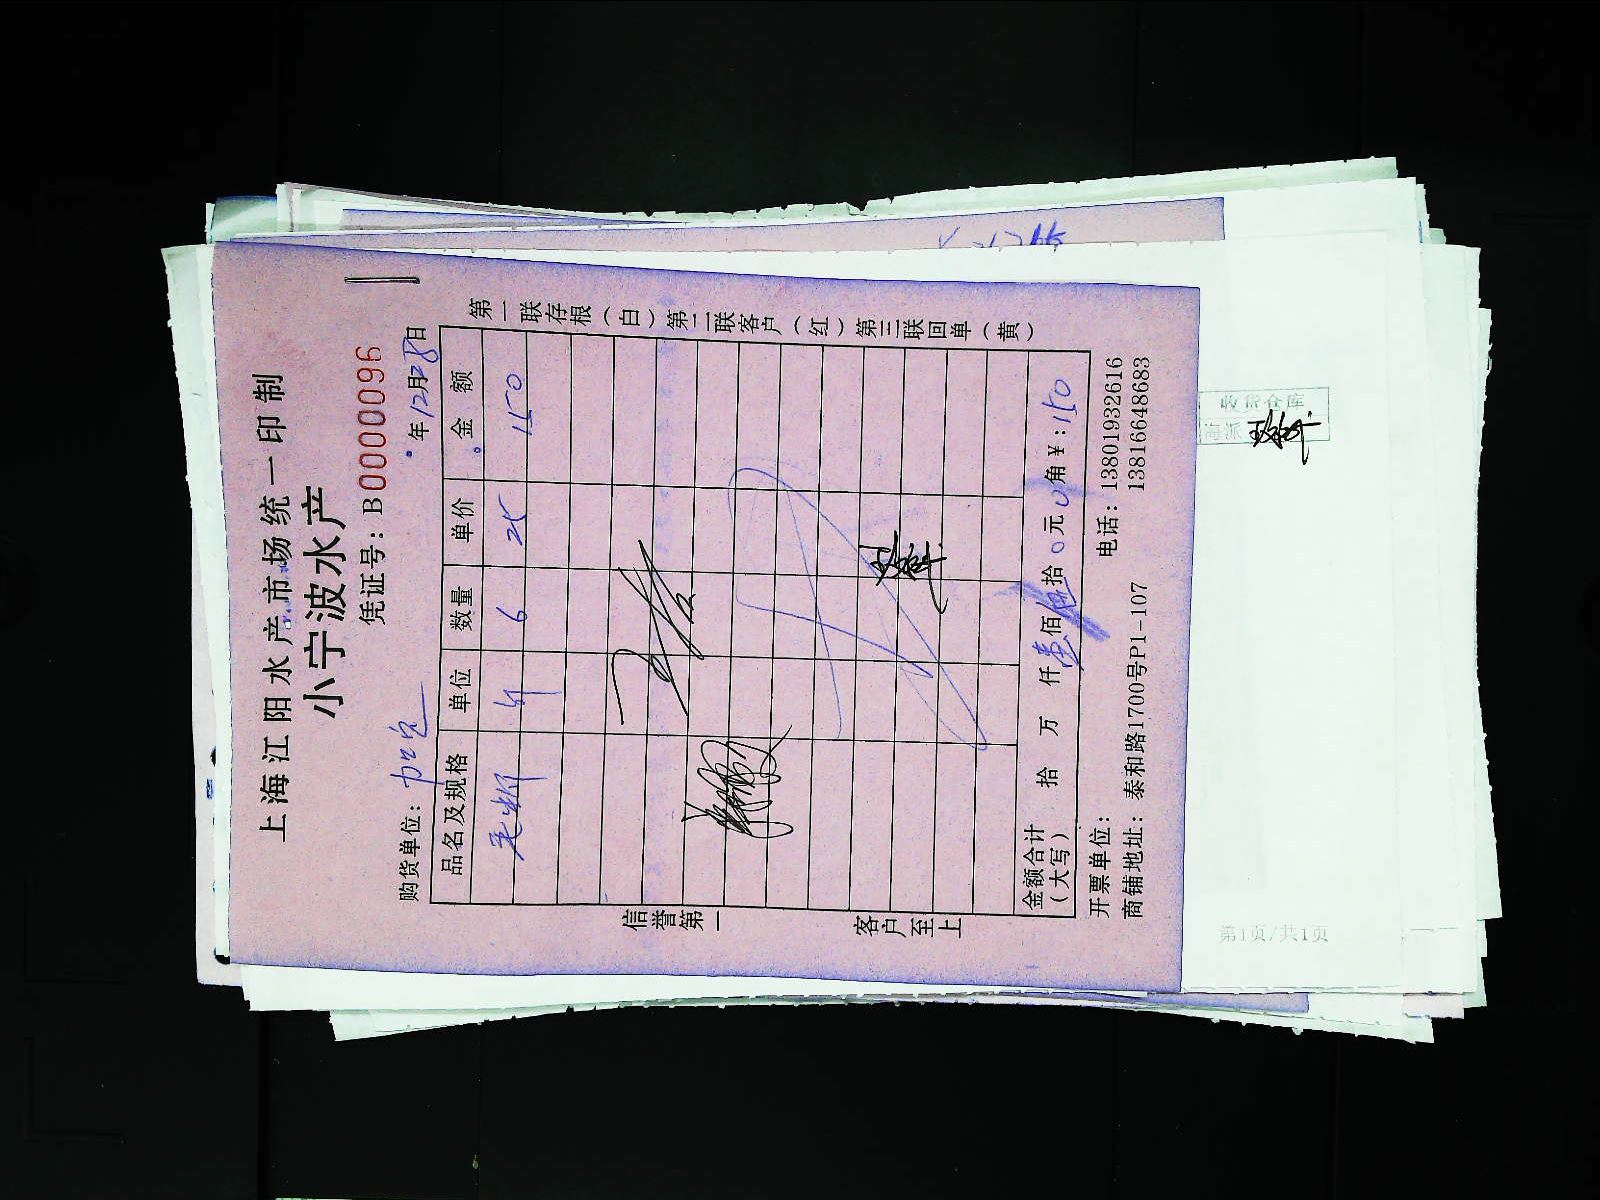 上海江阳水产市场统一印制
小宁波水产
凭证号：B0000096
购货单位：
年12月28日
品名及规格 单位 数量 单价 金额
毛蚶 斤 6 25 150
金额合计（大写） 拾 万 仟壹佰伍拾0元0角¥：150
开票单位：
电话：13801932616
13816648683
商铺地址：泰和路1700号P1-107
信誉第一
客户至上
第一联存根（白）第二联客户（红）第三联回单（黄）
收货仓库
第1页/共1页